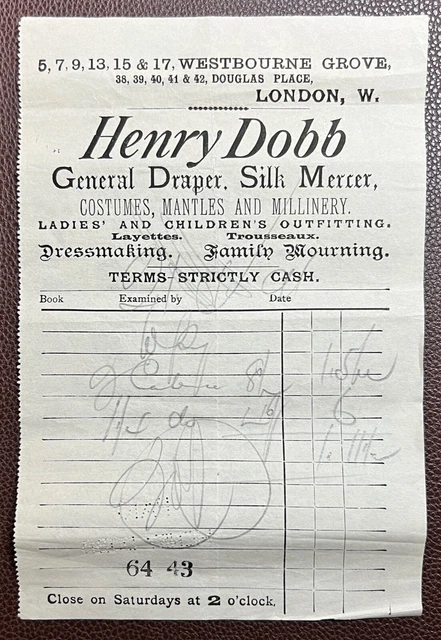 5, 7, 9, 13, 15 & 17, WESTBOURNE GROVE,
38, 39, 40, 41 & 42, DOUGLAS PLACE,
LONDON, W.
Henry Dobb
General Draper, Silk Mercer,
COSTUMES, MANTLES AND MILLINERY.
LADIES' AND CHILDREN'S OUTFITTING.
Layettes. Trousseaux.
Dressmaking. Family Mourning.
TERMS-STRICTLY CASH.
Book Examined by Date
64 43
Close on Saturdays at 2 o'clock.